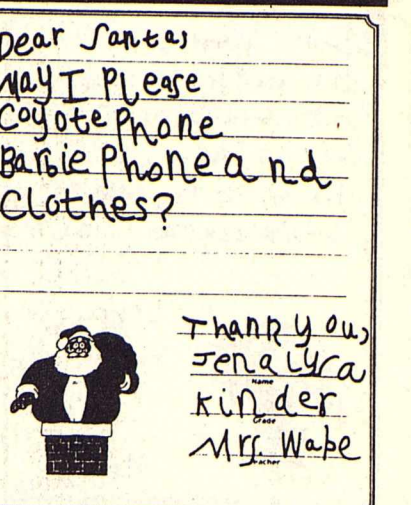 Dear Santa,
May I Please
Coyote Phone
Barbie Phone and
Clothes?
Thank you,
Jenalyra
Name
Kinder
Grade
Mrs. Wabe
Teacher